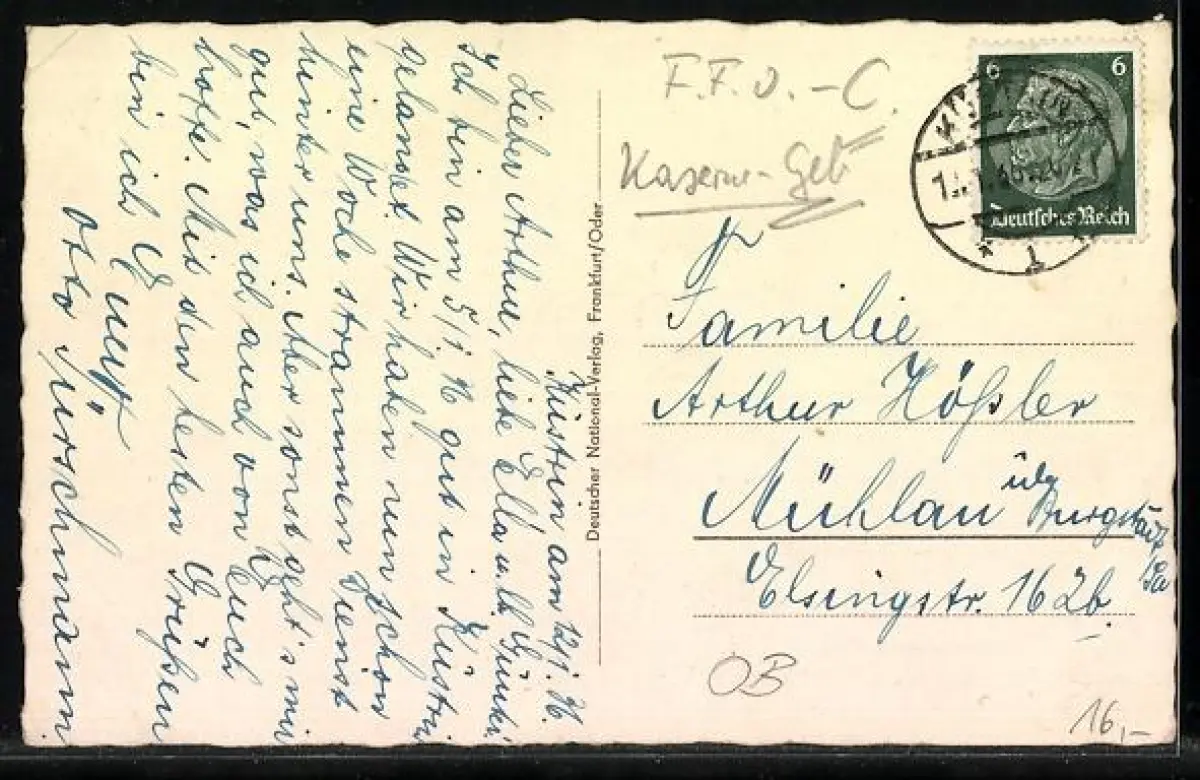 Küstrin am 12/1. 36.
Lieber Arthur, liebe Ella u. lb.
Ich bin am 5/1. 36 gut in Küstrin
gelandet. Wir haben nun schon
eine Woche strammen Dienst
hinter uns. Aber sonst geht's mir
gut, was ich auch von Euch
hoffe. Mit den besten Grüßen
bin ich Euer
Otto
Deutscher National-Verlag, Frankfurt/Oder
F.F.O. - C.
Kaserne - Geb
6 6
Deutsches Reich
1
Familie
Arthur Hößler
Mühlau üb/
Burgstädt
/Sa
Elsingstr. 162b.
OB
16,-